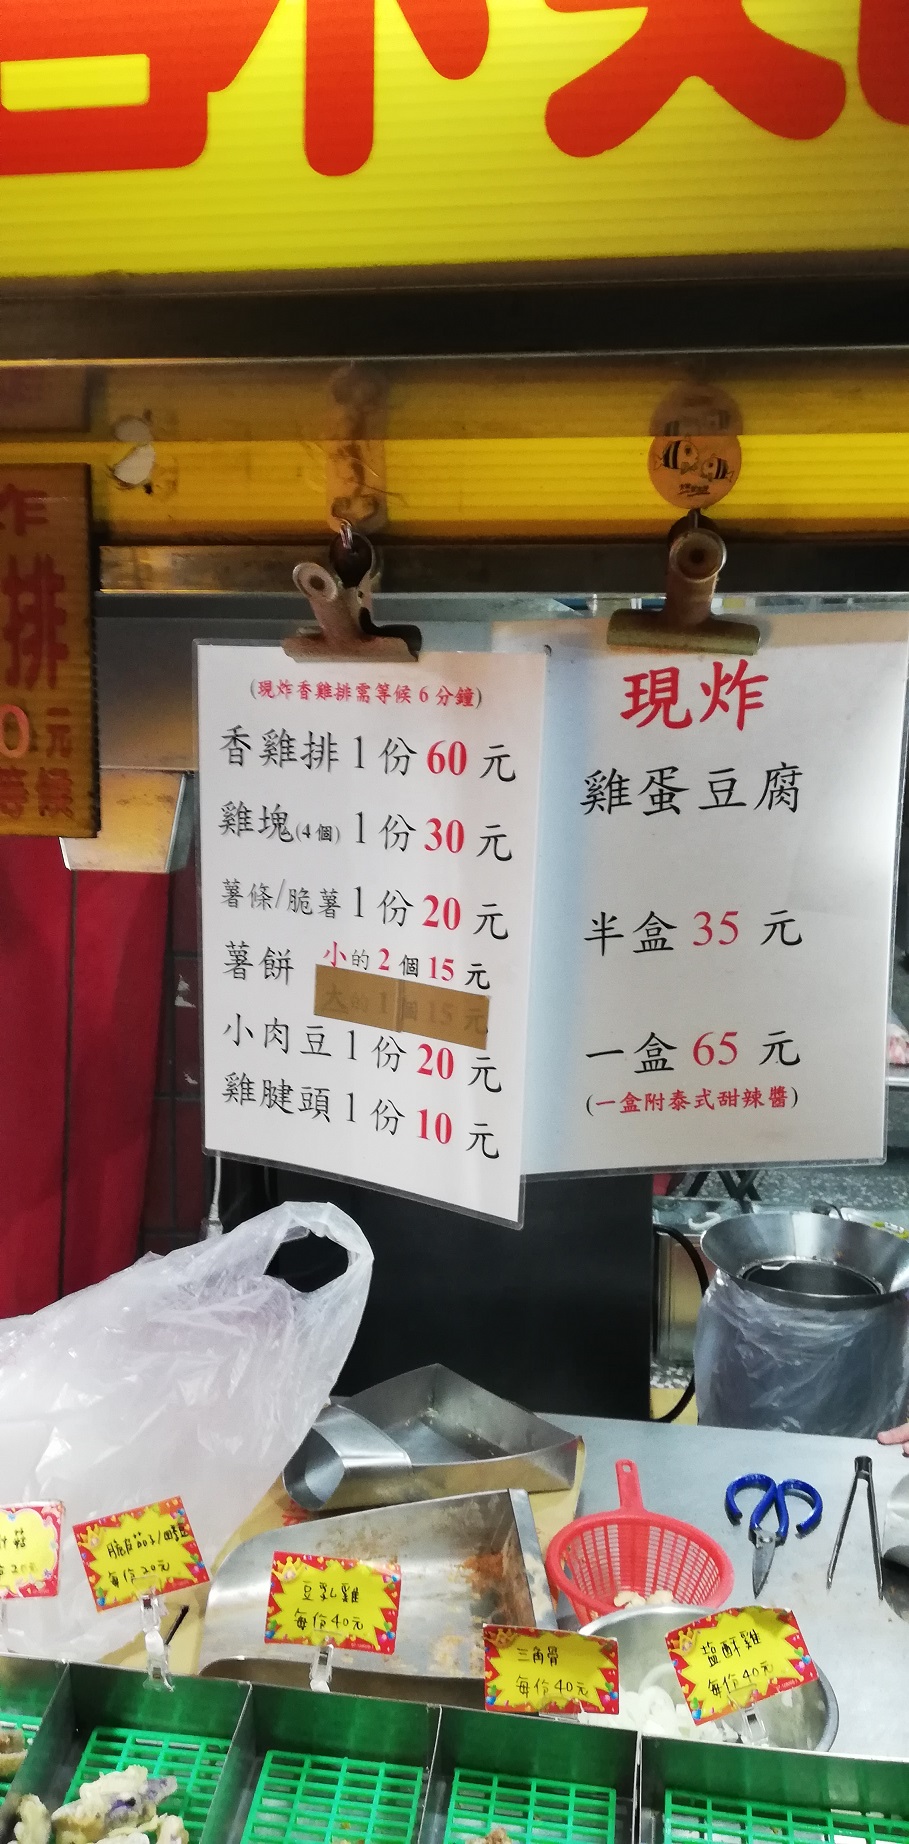 炸
排
0元
等候
(現炸香雞排需等候 6 分鐘)
香雞排 1 份 60 元
雞塊(4 個) 1 份 30 元
薯條/脆薯 1 份 20 元
薯餅 小的 2 個 15 元
大的 1 個 15 元
小肉豆 1 份 20 元
雞腱頭 1 份 10 元
現炸
雞蛋豆腐
半盒 35 元
一盒 65 元
(一盒附泰式甜辣醬)
菇
20元
每份20元
豆乳雞
每份40元
三角骨
每份40元
塩酥雞
每份40元